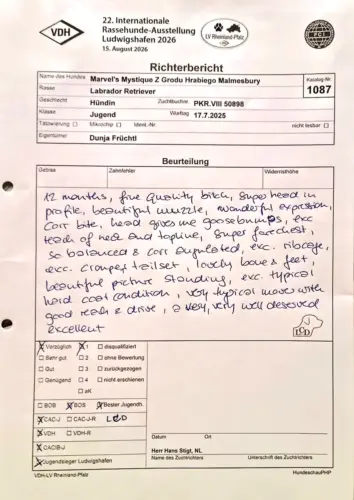 VDH
22. Internationale
Rassehunde-Ausstellung
Ludwigshafen 2026
15. August 2026
LV Rheinland-Pfalz
FCI
Richterbericht
Name des Hundes Marvel's Mystique Z Grodu Hrabiego Malmesbury
Katalog-Nr. 1087
Rasse Labrador Retriever
Geschlecht Hündin Zuchtbuchnr. PKR.VIII 50898
Klasse Jugend Wurftag 17.7.2025
Tätowierung ☐ Mikrochip ☐ Ident.-Nr. nicht lesbar ☐
Eigentümer Dunja Früchtl
Beurteilung
Gebiss Zahnfehler Widerristhöhe
12 months, fine quality bitch, super head in
profile, beautiful muzzle, wonderful expression,
corr bite, head gives me goosebumps, exc
reach of neck and topline, super forechest,
so balanced & corr angulated, exc. ribcage,
exc. croup & tailset, lovely bone & feet,
beautiful picture standing, exc. typical
hard coat condition, very typical moves with
good reach & drive, a very, very well deserved
excellent
☒ Vorzüglich ☒ 1 ☐ disqualifiziert
☐ Sehr gut ☐ 2 ☐ ohne Bewertung
☐ Gut ☐ 3 ☐ zurückgezogen
☐ Genügend ☐ 4 ☐ nicht erschienen
☐ aK
☐ BOB ☒ BOS ☒ Bester Jugendh.
☒ CAC-J ☐ CAC-J-R LCD
☒ VDH ☐ VDH-R
☒ CACIB-J
☒ Jugendsieger Ludwigshafen
Datum Ort
Herr Hans Stigt, NL
Name des Zuchtrichters Unterschrift des Zuchtrichters
VDH-LV Rheinland-Pfalz HundeschauPHP